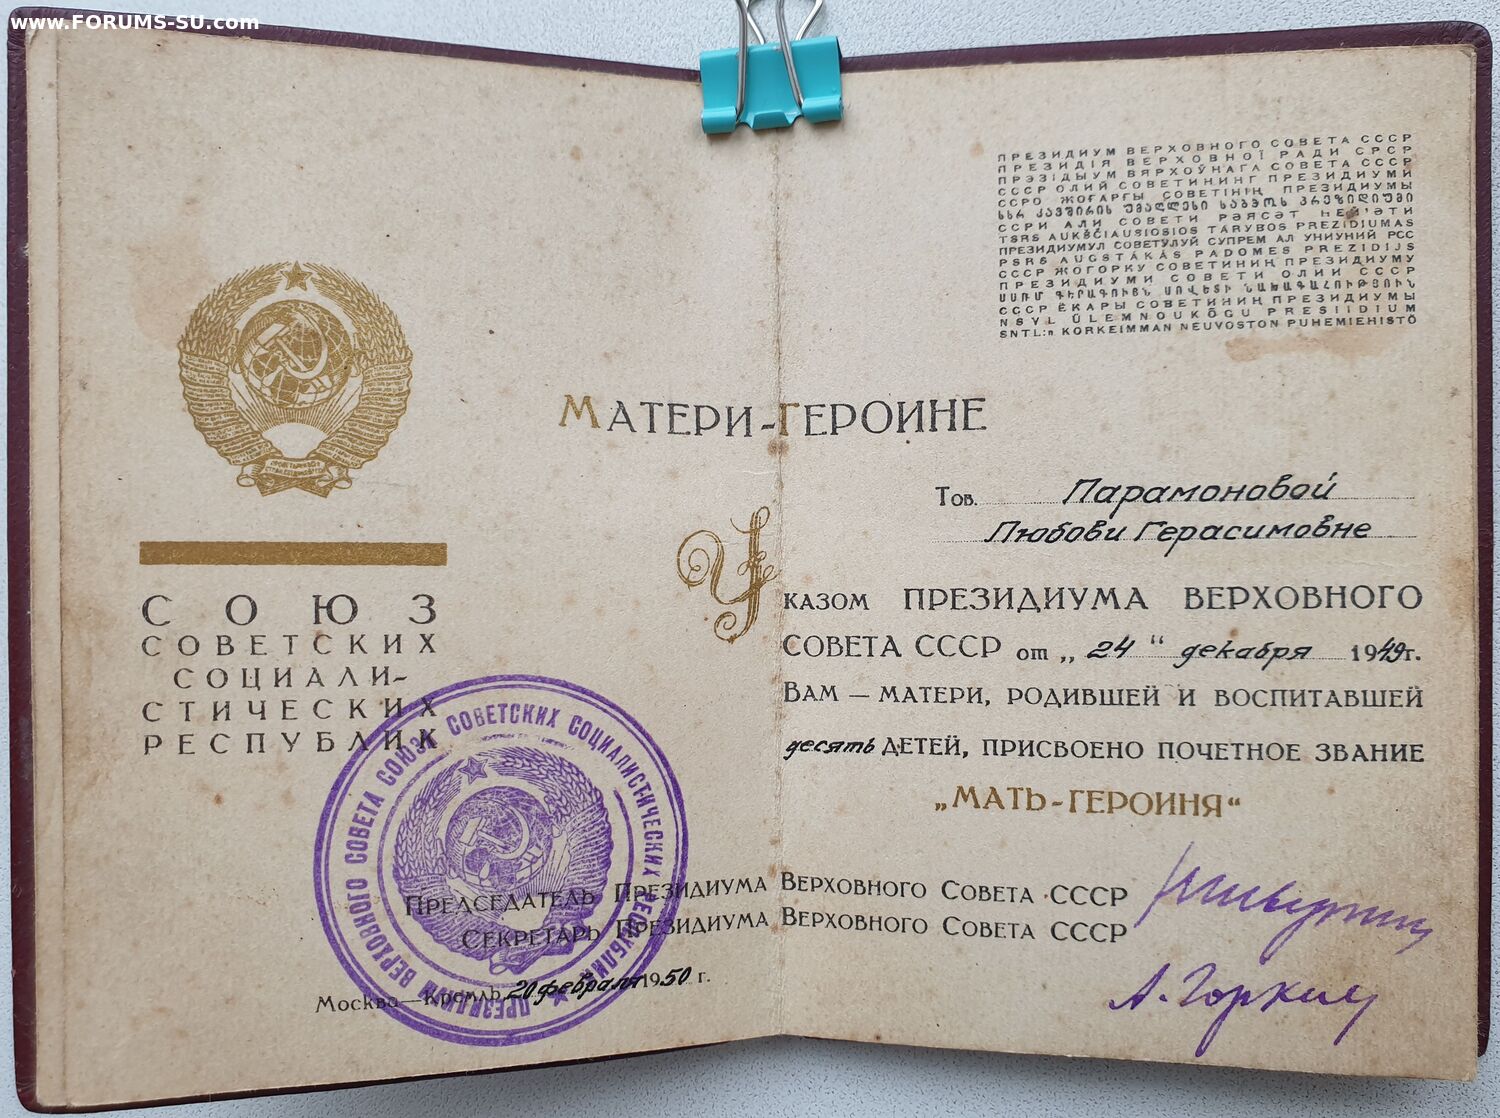 www.FORUMS-SU.com
ПРЕЗИДИУМ ВЕРХОВНОГО СОВЕТА СССР
ПРЕЗИДІЯ ВЕРХОВНОЇ РАДИ СРСР
ПРЭЗІДЫУМ ВЯРХОЎНАГА СОВЕТА СССР
СССР ОЛИЙ СОВЕТИНИНГ ПРЕЗИДИУМИ
ССРО ЖОҒАРҒЫ СОВЕТІНІҢ ПРЕЗИДИУМЫ
სსრ კავშირის უმაღლესი საბჭოს პრეზიდიუმი
ССРИ АЛИ СОВЕТИ РӘЈАСӘТ ҺЕЈ'ӘТИ
TSRS AUKŠČIAUSIOSIOS TARYBOS PREZIDIUMAS
ПРЕЗИДИУМУЛ СОВЕТУЛУЙ СУПРЕМ АЛ УНИУНИЙ РСС
PSRS AUGSTĀKĀS PADOMES PREZIDIJS
СССР ЖОГОРКУ СОВЕТИНИН ПРЕЗИДИУМУ
ПРЕЗИДИУМИ СОВЕТИ ОЛИИ СССР
ՍՍՌՄ ԳԵՐԱԳՈՒՅՆ ՍՈՎԵՏԻ ՆԱԽԱԳԱՀՈՒԹՅՈՒՆ
СССР ЁКАРЫ СОВЕТИНИҢ ПРЕЗИДИУМЫ
NSVL ÜLEMNÕUKOGU PRESIIDIUM
SNTL:n KORKEIMMAN NEUVOSTON PUHEMIEHISTÖ
МАТЕРИ-ГЕРОИНЕ
Тов. Парамоновой
Любови Герасимовне
Указом ПРЕЗИДИУМА ВЕРХОВНОГО
СОВЕТА СССР от „24“ декабря 1949г.
ВАМ — МАТЕРИ, РОДИВШЕЙ И ВОСПИТАВШЕЙ
десять ДЕТЕЙ, ПРИСВОЕНО ПОЧЕТНОЕ ЗВАНИЕ
„МАТЬ-ГЕРОИНЯ“
СОЮЗ
СОВЕТСКИХ
СОЦИАЛИ-
СТИЧЕСКИХ
РЕСПУБЛИК
ПРЕЗИДИУМ ВЕРХОВНОГО СОВЕТА СОЮЗА СОВЕТСКИХ СОЦИАЛИСТИЧЕСКИХ РЕСПУБЛИК
ПРЕДСЕДАТЕЛЬ ПРЕЗИДИУМА ВЕРХОВНОГО СОВЕТА СССР
СЕКРЕТАРЬ ПРЕЗИДИУМА ВЕРХОВНОГО СОВЕТА СССР
А. Горкин
Москва—Кремль, 20 февраля 1950 г.